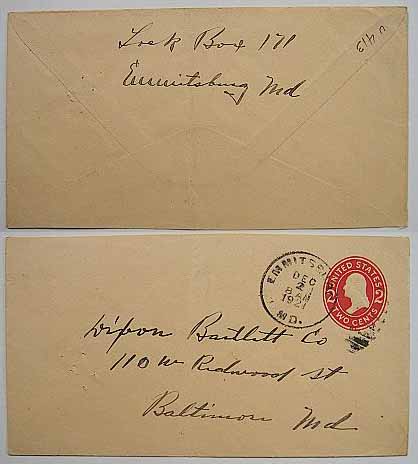 Lock Box 171
Emmitsburg Md
U 413
EMMITSB
DEC
2
8 AM
1921
MD.
UNITED STATES
2 2
TWO CENTS
Dixon Bartlett Co
110 W Redwood St
Baltimore Md